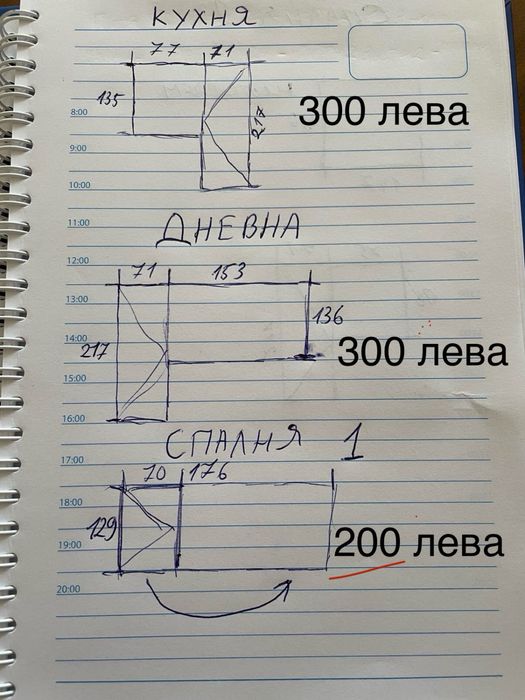 КУХНЯ
77 71
135
8:00
300 лева
217
9:00
10:00
11:00
ДНЕВНА
12:00
71 153
13:00
136
14:00
217
300 лева
15:00
16:00
СПАЛНЯ 1
17:00
70 176
18:00
129
200 лева
19:00
20:00